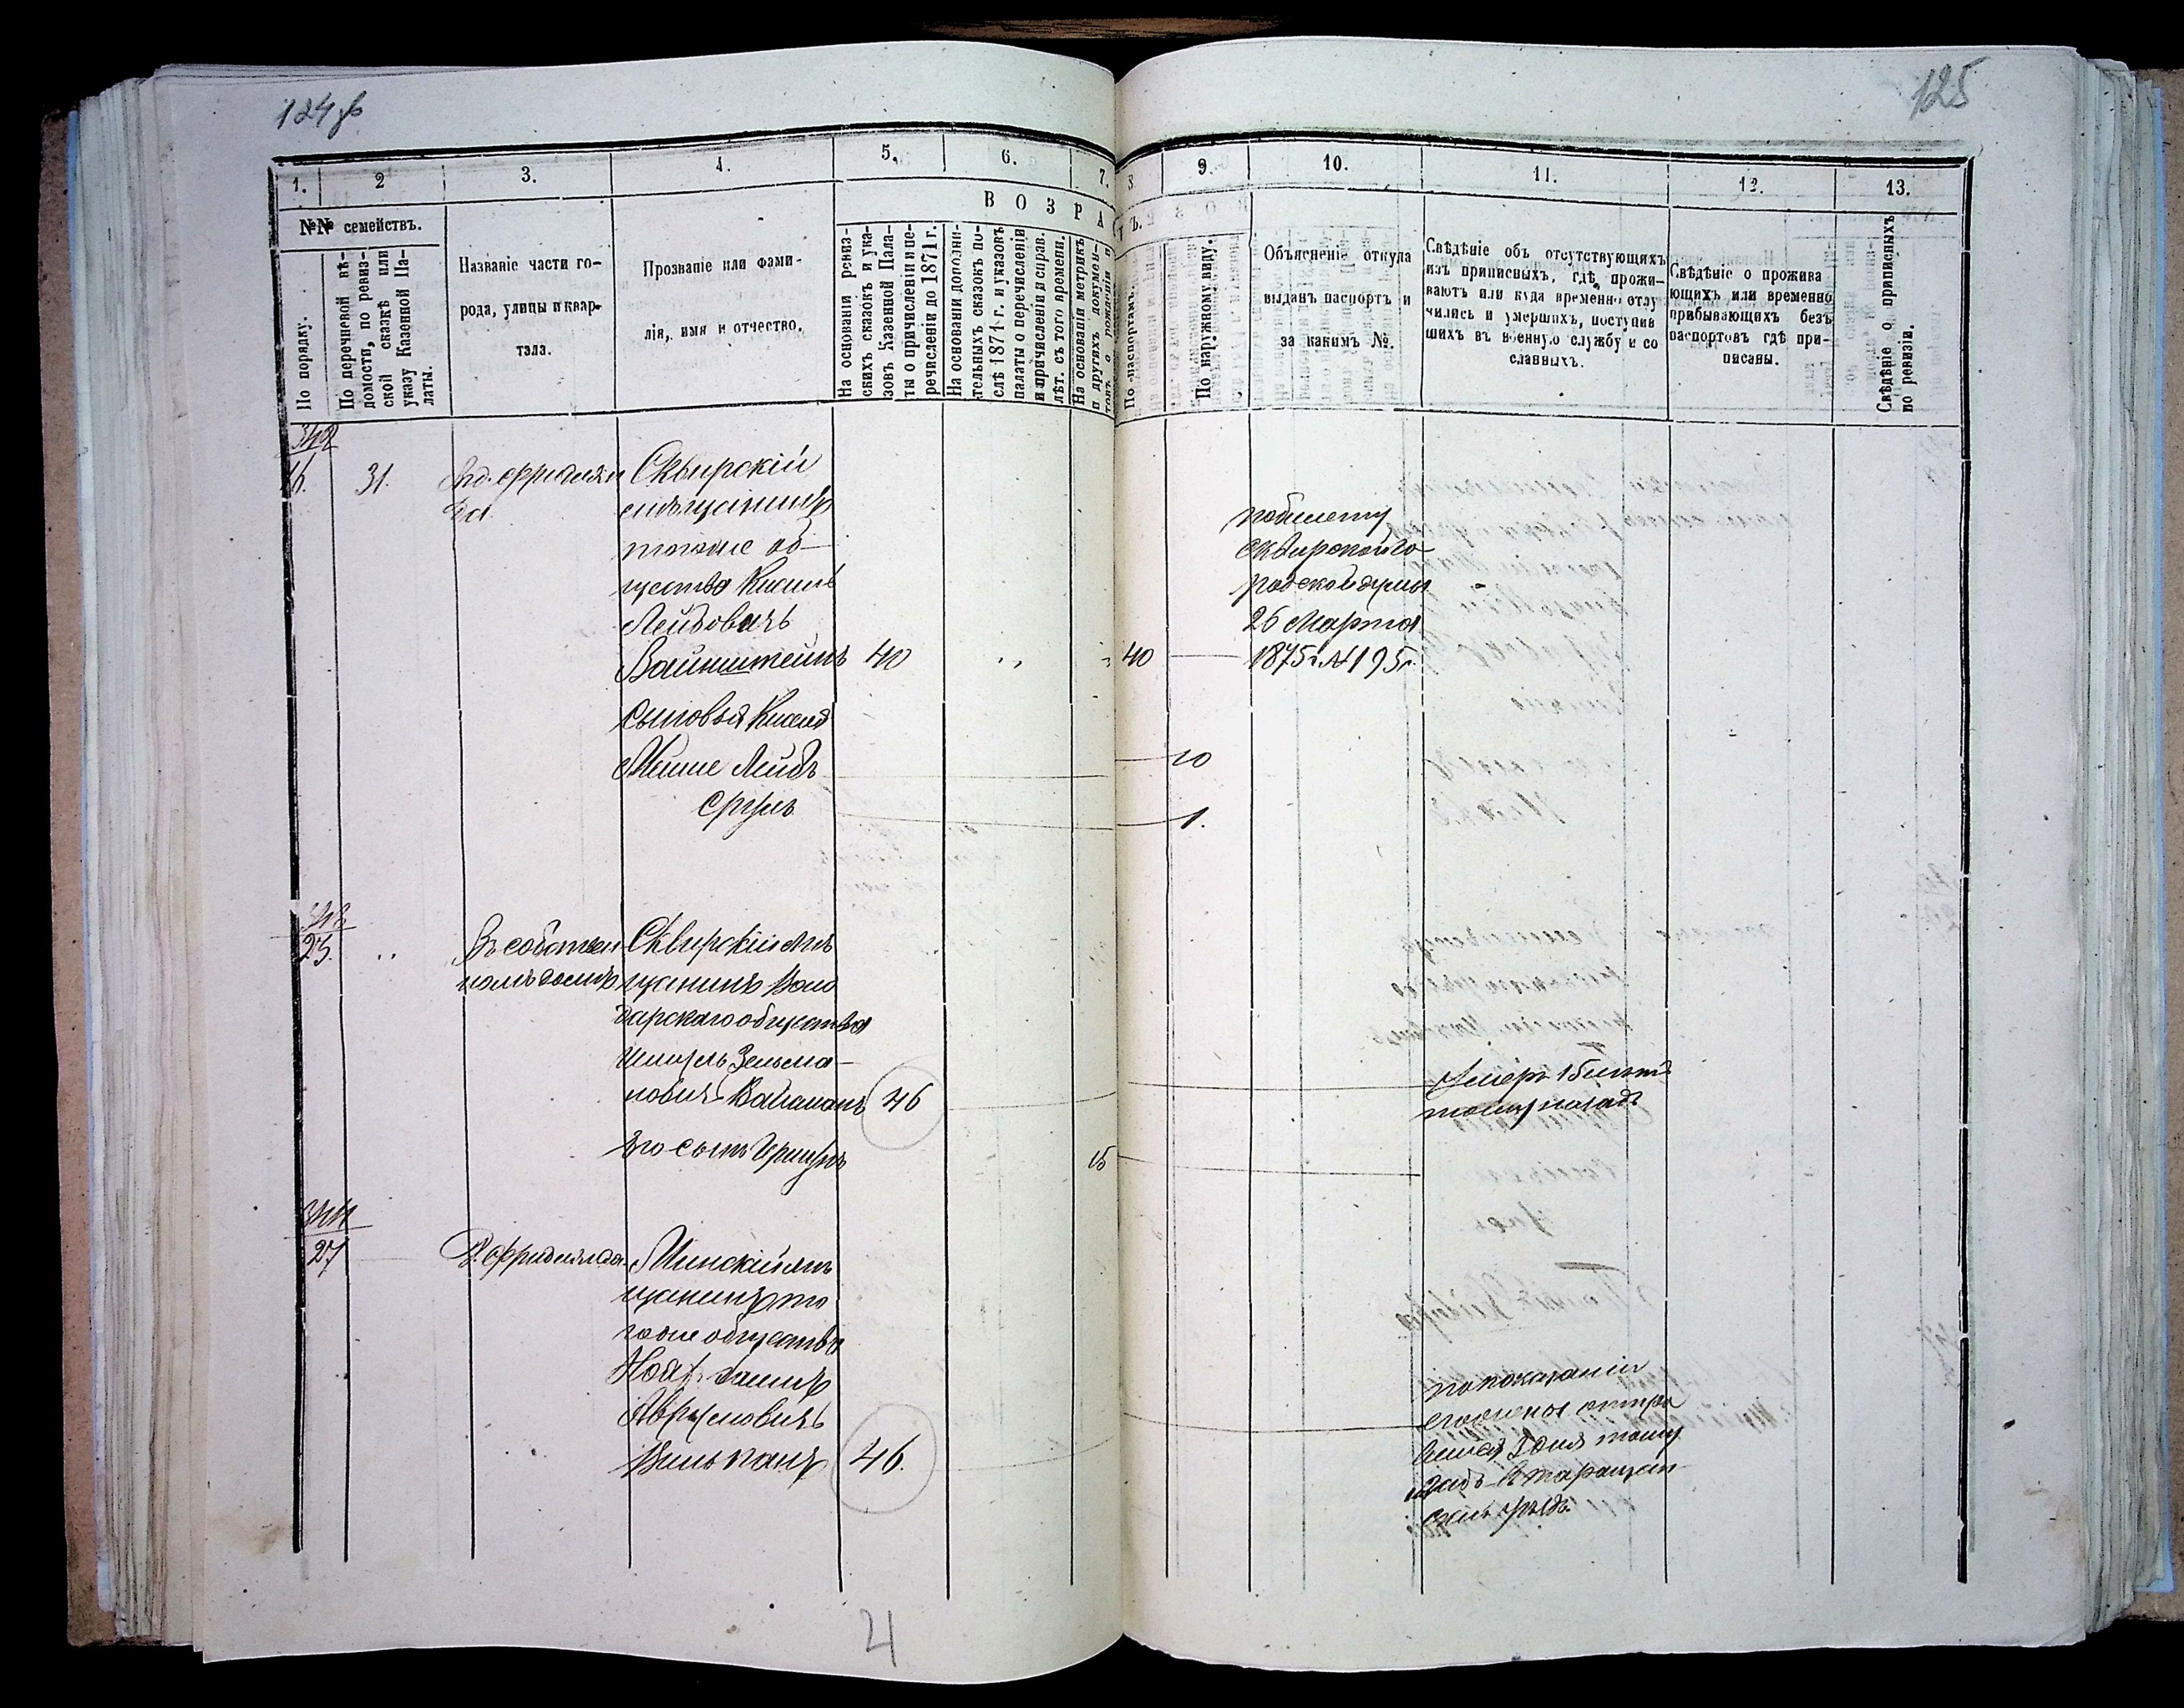 124 об
125
1.
2
3.
4.
5.
6.
7.
8.
9.
10.
11.
12.
13.
№№ семействъ.
ВОЗРАСТЪ.
По порядку.
По перечневой вѣ-
домости, по ревиз-
ской сказкѣ или
указу Казенной Па-
латы.
Названіе части го-
рода, улицы и квар-
тала.
Прозваніе или фами-
лія, имя и отчество.
На основаніи ревиз-
скихъ сказокъ и ука-
зовъ Казенной Пала-
ты о причисленіи и пе-
речисленіи до 1871 г.
На основаніи дополни-
тельныхъ сказокъ по-
слѣ 1871 г. и указовъ
палаты о перечисленіи
и причисленіи и справ.
лѣт. съ того времени.
На основаніи метрикъ
и другихъ докумен-
товъ о рожденіи
По паспортамъ.
По наружному виду.
Объясненіе откуда
выданъ паспортъ и
за какимъ №.
Свѣдѣніе объ отсутствующихъ
изъ приписныхъ, гдѣ прожи-
ваютъ или куда временно отлу
чились и умершихъ, поступив
шихъ въ военную службу и со
сланныхъ.
Свѣдѣніе о прожива
ющихъ или временно
прибывающихъ безъ
паспортовъ гдѣ при-
писаны.
Свѣдѣніе о приписныхъ
по ревизіи.
342
16. 31. Сквирскій
мѣщанинъ
тогоже об-
щества Кисиль
Лейбовичъ
Вайнштейнъ 40 " " 40
по билету
Сквирской го-
родской думы
26 Марта
1875 г. № 195
Сыновья Кисиля
Мошко Лейбъ 10
Сруль 1.
343
23. " Въ собствен Сквирскій мѣ
номъ домѣ щанинъ Воло
дарскаго общества
Шмуль Зельма-
новичъ 46
Умеръ 15 лѣтъ
тому назадъ
Его сынъ Гершунъ 15
344
27 Минскій мѣ
щанинъ то
гоже общества
46.
по показанію
тому
Таращан
скій уѣздъ.
4